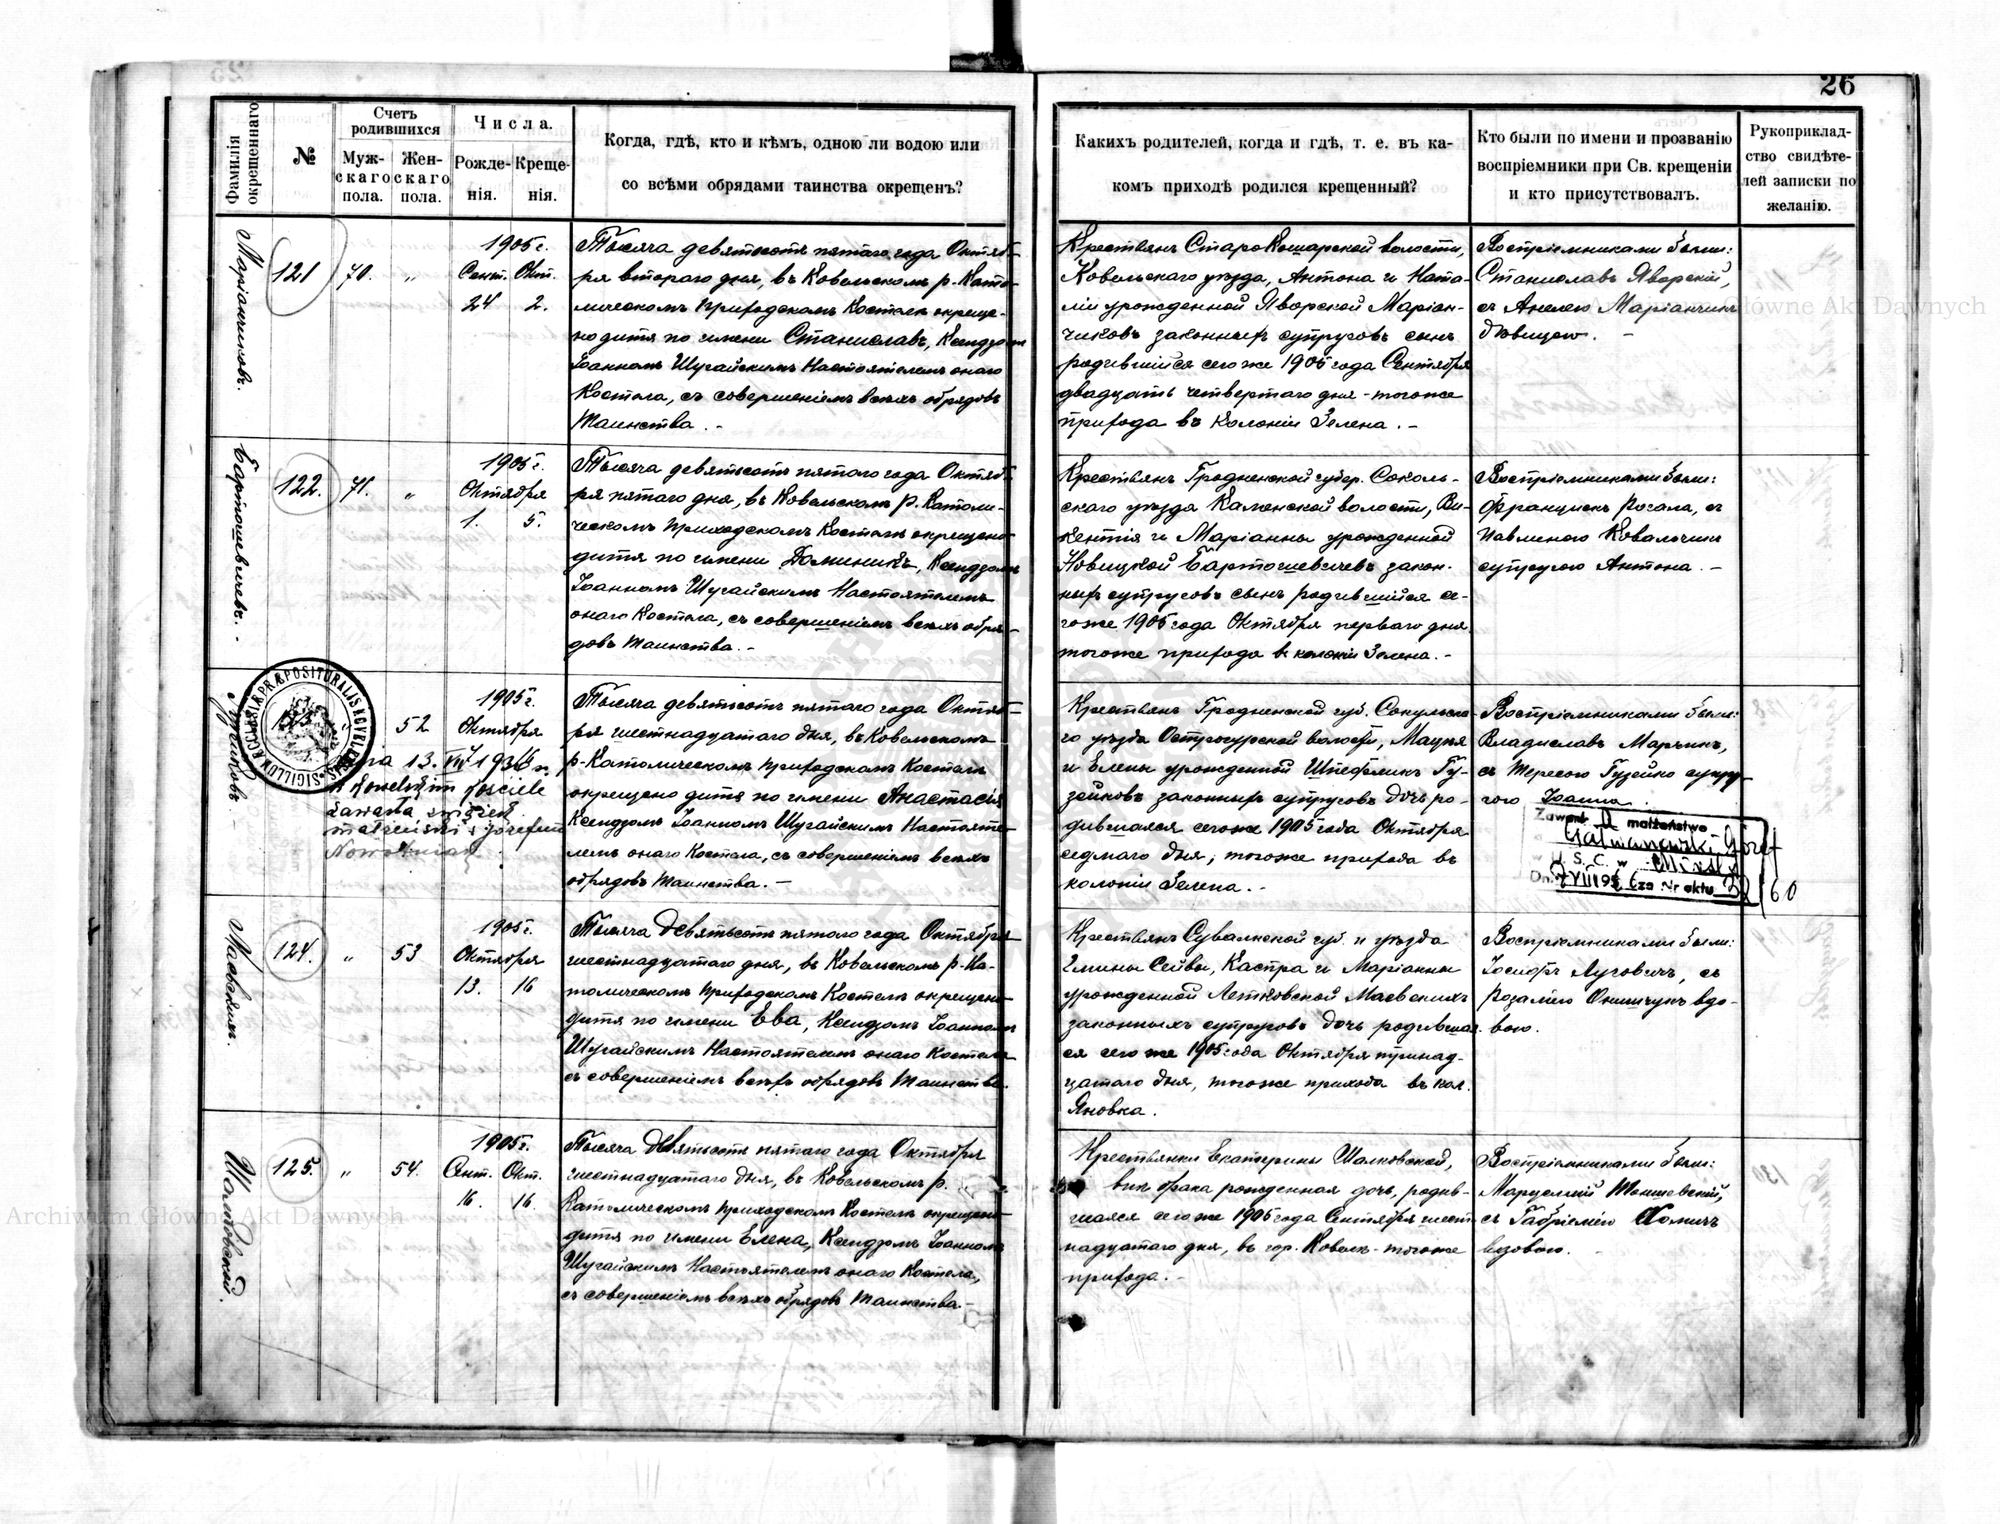 26
Фамилія окрещеннаго.
№
Счетъ родившихся
Мужскаго пола.
Женскаго пола.
Числа.
Рожденія.
Крещенія.
Когда, гдѣ, кто и кѣмъ, одною ли водою или
со всѣми обрядами таинства окрещенъ?
Какихъ родителей, когда и гдѣ, т. е. въ ка-
комъ приходѣ родился крещенный?
Кто были по имени и прозванію
воспріемники при Св. крещеніи
и кто присутствовалъ.
Рукоприклад-
ство свидѣте-
лей записки по
желанію.
Маріанчиковъ.
121
70.
"
1905 г.
Сент. Окт.
24 2.
Тысяча девятьсотъ пятаго года Октяб-
ря втораго дня, въ Ковельскомъ р. Като-
лическомъ Приходскомъ Костелѣ окреще-
но дитя по имени Станиславъ, Ксендзомъ
Іоанномъ Шугайскимъ Настоятелемъ онаго
Костела, съ совершеніемъ всѣхъ обрядовъ
Таинства. -
Крестьянъ СтароКошарской волости,
Ковельскаго уѣзда, Антона и Ната-
ліи урожденной Яворской Маріан-
чиковъ законныхъ супруговъ сынъ
родившійся сего же 1905 года Сентября
двадцать четвертаго дня - тогоже
прихода въ Колоніи Зелена. -
Воспріемниками были:
Станиславъ Яворскій,
съ Анелею Маріанчикъ
дѣвицею. -
Бартошевичевъ. -
122.
71.
"
1905 г.
Октября
1. 5.
Тысяча девятьсотъ пятаго года Октяб-
ря пятаго дня, въ Ковельскомъ Р. Католи-
ческомъ Приходскомъ Костелѣ окрещено
дитя по имени Доминикъ, Ксендзомъ
Іоанномъ Шугайскимъ Настоятелемъ
онаго Костела, съ совершеніемъ всѣхъ обря-
довъ Таинства. -
Крестьянъ Гродненской губер. Соколь-
скаго уѣзда Каменской волости, Ви-
кентія и Маріанны урожденной
Новицкой Бартошевичевъ закон-
ныхъ супруговъ сынъ родившійся се-
гоже 1905 года Октября перваго дня
тогоже прихода въ колоніи Зелена. -
Воспріемниками были:
Францискъ Рогала, съ
Павлиною Ковальчикъ
супругою Антона. -
SIGILLUM ECCLESIAE PRAEPOSITURALIS KOVELENSIS
123
"
52
1905 г.
Октября
dnia 13. VII 1936 r.
w Kowelskim kościele
zawarła związek
małżeński z Józefem
Тысяча девятьсотъ пятаго года Октяб-
ря шестнадцатаго дня, въ Ковельскомъ
р-Католическомъ Приходскомъ Костелѣ
окрещено дитя по имени Анастасія
Ксендзомъ Іоанномъ Шугайскимъ Настояте-
лемъ онаго Костела, съ совершеніемъ всѣхъ
обрядовъ Таинства. -
Крестьянъ Гродненской губ. Сокульска-
го уѣзда Острогурской волости, Мацѣя
и Елены урожденной Штефеликъ Гу-
зейковъ законныхъ супруговъ дочь ро-
дившаяся сегоже 1905 года Октября
седмаго дня, тогоже прихода въ
колоніи Зелена. -
Воспріемниками были:
Владиславъ Марьинъ,
съ Тересою Гузейко супру-
гою Іоанна.
Zawarł II małżeństwo
w U.S.C. w
Cza Nr aktu 32/60
Маевскихъ.
124.
"
53
1905 г.
Октября
13. 16
Тысяча девятьсотъ пятого года Октября
шестнадцатаго дня, въ Ковельскомъ р-Ка-
толическомъ Приходскомъ Костелѣ окрещено
дитя по имени Ева, Ксендзомъ Іоанномъ
Шугайскимъ Настоятелемъ онаго Костела
съ совершеніемъ всѣхъ обрядовъ Таинства.
Крестьянъ Сувалкской губ. и уѣзда
Гмины Сейвы, Кастра и Маріанны
урожденной Летковской Маевскихъ
законныхъ супруговъ дочь родившая-
ся сего же 1905 года Октября тринад-
цатаго дня, тогоже прихода въ кол.
Яновка.
Воспріемниками были:
Іосифъ Луговичъ, съ
Розаліею Онищукъ вдо-
вою.
Шалковской.
125.
"
54.
1905 г.
Сент. Окт.
16. 16.
Тысяча девятьсотъ пятаго года Октября
шестнадцатаго дня, въ Ковельскомъ р.
Католическомъ Приходскомъ Костелѣ окрещено
дитя по имени Елена, Ксендзомъ Іоанномъ
Шугайскимъ Настоятелемъ онаго Костела,
съ совершеніемъ всѣхъ обрядовъ Таинства. -
Крестьянки Екатерины Шалковской,
внѣ брака рожденная дочь, родив-
шаяся сегоже 1905 года Сентября шест-
надцатаго дня, въ гор. Ковелѣ - тогоже
прихода. -
Воспріемниками были:
Марцелій Томшевскій,
съ Габріелію Хомичъ
вдовою.
Archiwum Główne Akt Dawnych
Archiwum Główne Akt Dawnych